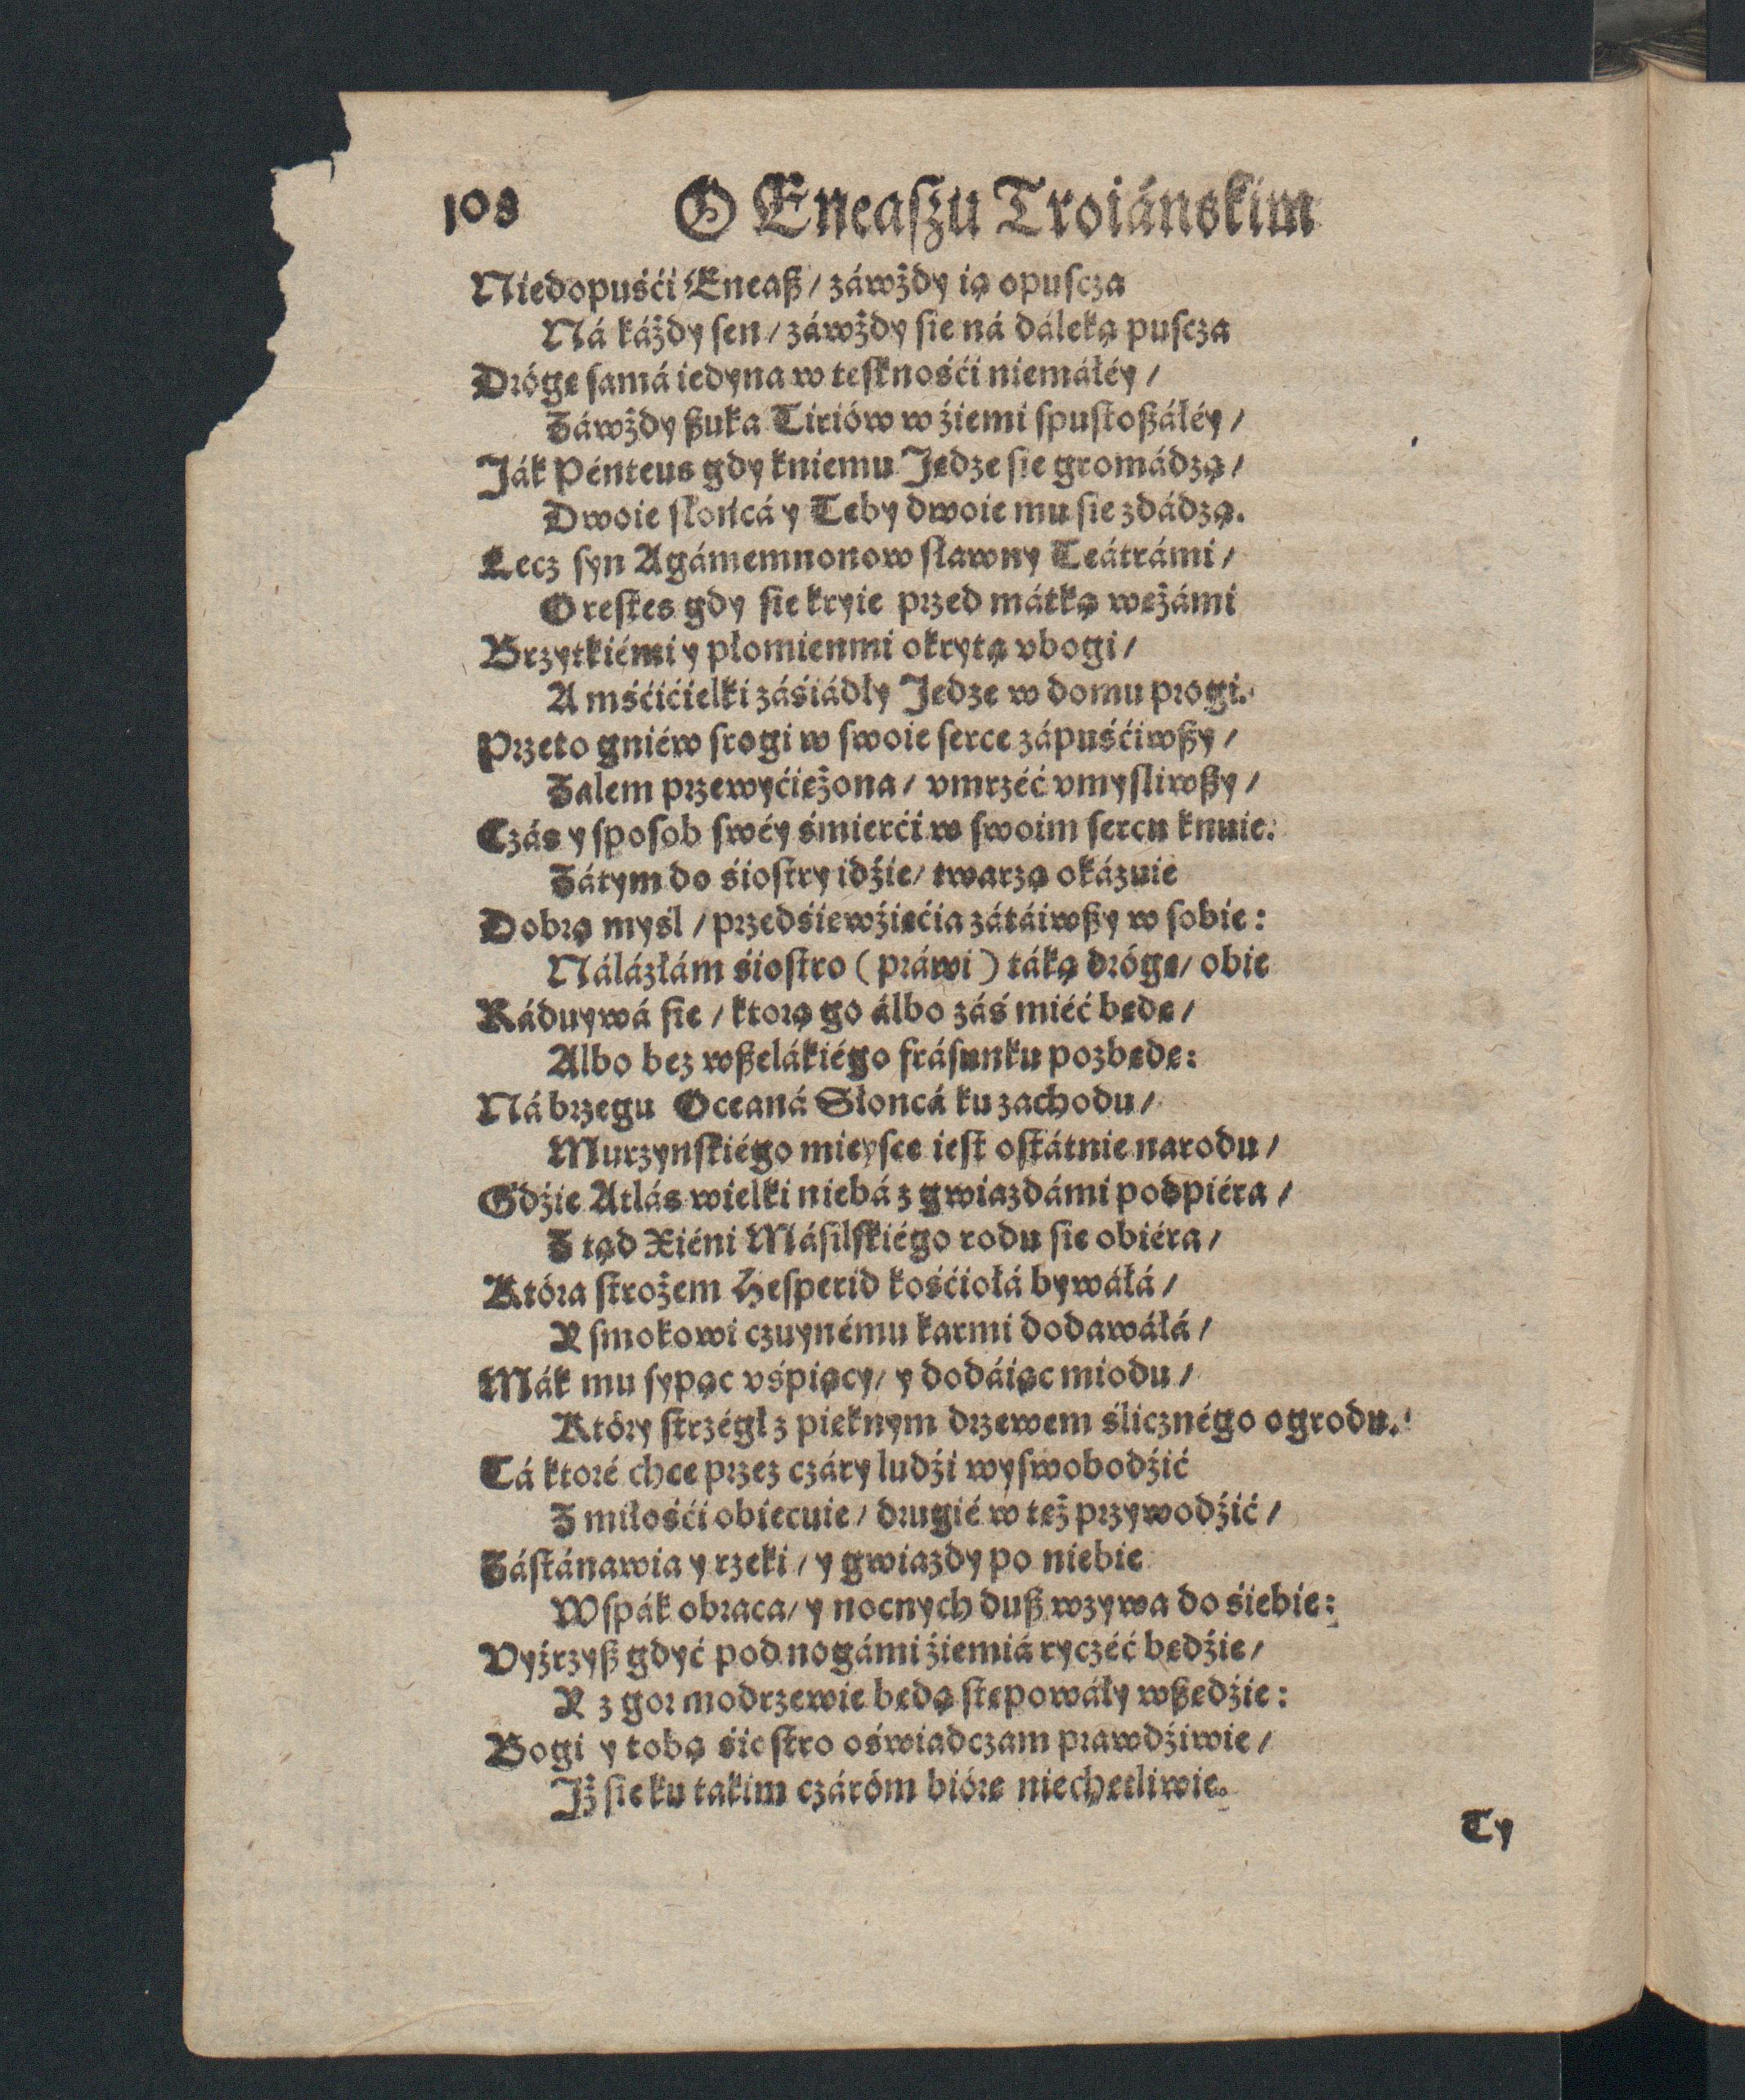 108 O Eneaszu Troiánskim
Niedopuśći Eneaß / záwżdy ią opuscza
Ná káżdy sen / záwżdy sie ná dáleką puscza
Drógę samá iedyna w tesknośći niemáłéy /
Záwżdy ßuka Tiriów w źiemi spustoßáłéy /
Ják Pénteus gdy kniemu Jędze sie gromádzą /
Dwoie słońcá y Teby dwoie mu sie zdádzą.
Lecz syn Agámemnonow sławny Teátrámi /
Orestes gdy sie kryie przed mátką wężámi
Brzytkiémi y płomienmi okrytą vbogi /
A mśćićielki záśiádły Jędze w domu progi.
Przeto gniéw srogi w swoie serce zápuśćiwßy /
Zalem przewyćiężona / vmrzéć vmysliwßy /
Czás y sposob swéy śmierći w swoim sercu knuie.
Zátym do śiostry idźie / twarzą okázuie
Dobrą myśl / przedśiewźięćia zátáiwßy w sobie:
Nálázłám śiostro ( práwi ) táką drógę / obie
Ráduywá sie / ktorą go álbo záś miéć będę /
Albo bez wßelákiégo frásunku pozbędę:
Ná brzegu Oceaná Słoncá ku zachodu /
Murzynskiégo mieysce iest ostátnie narodu /
Gdźie Atlás wielki niebá z gwiazdámi podpiéra /
Z tąd Xiéni Másilskiégo rodu sie obiéra /
Która strożem Hesperid kośćiołá bywáłá /
Y smokowi czuynému karmi dodawáłá /
Mák mu sypąc vśpiący / y dodáiąc miodu /
Który strzégł z pięknym drzewem ślicznégo ogrodu.
Tá ktoré chce przez czáry ludźi wyswobodźić
Z miłośći obiecuie / drugié w też przywodźić /
Zástánawia y rzeki / y gwiazdy po niebie
Wspák obraca / y nocnych duß wzywa do śiebie:
Vyźrzyß gdyć pod nogámi źiemiá ryczéć będźie /
Y z gor modrzewie będą stępowáły wßędźie:
Bogi y tobą śiostro oświadczam prawdźiwie /
Jż sie ku takim czáróm biórę niechętliwie.
Ty